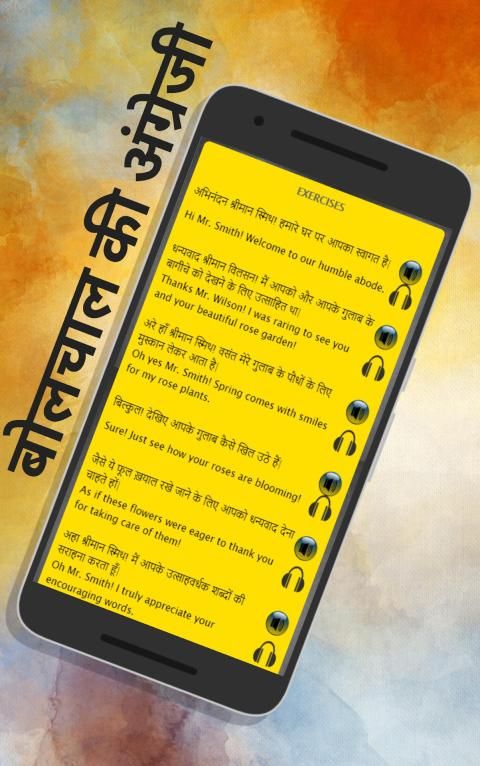 बोलचाल की अंग्रेजी
EXERCISES
अभिनंदन श्रीमान स्मिथ! हमारे घर पर आपका स्वागत है।
Hi Mr. Smith! Welcome to our humble abode.
धन्यवाद श्रीमान विलसन! मैं आपको और आपके गुलाब के
बागीचे को देखने के लिए उत्साहित था।
Thanks Mr. Wilson! I was raring to see you
and your beautiful rose garden!
अरे हाँ श्रीमान स्मिथ! वसंत मेरे गुलाब के पौधों के लिए
मुस्कान लेकर आता है।
Oh yes Mr. Smith! Spring comes with smiles
for my rose plants.
बिल्कुल! देखिए आपके गुलाब कैसे खिल उठे हैं!
Sure! Just see how your roses are blooming!
जैसे ये फूल ख़यात रखे जाने के लिए आपको धन्यवाद देना
चाहते हों!
As if these flowers were eager to thank you
for taking care of them!
अहा श्रीमान स्मिथ! मैं आपके उत्साहवर्धक शब्दों की
सराहना करता हूँ।
Oh Mr. Smith! I truly appreciate your
encouraging words.